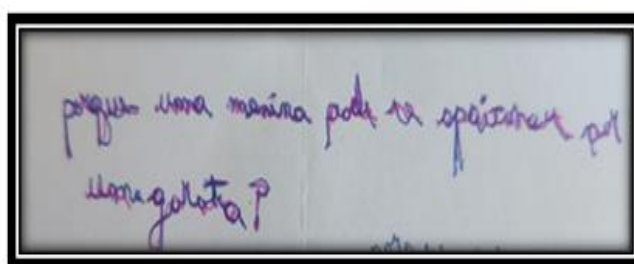 porque uma menina pode se apaixonar por
uma garota?